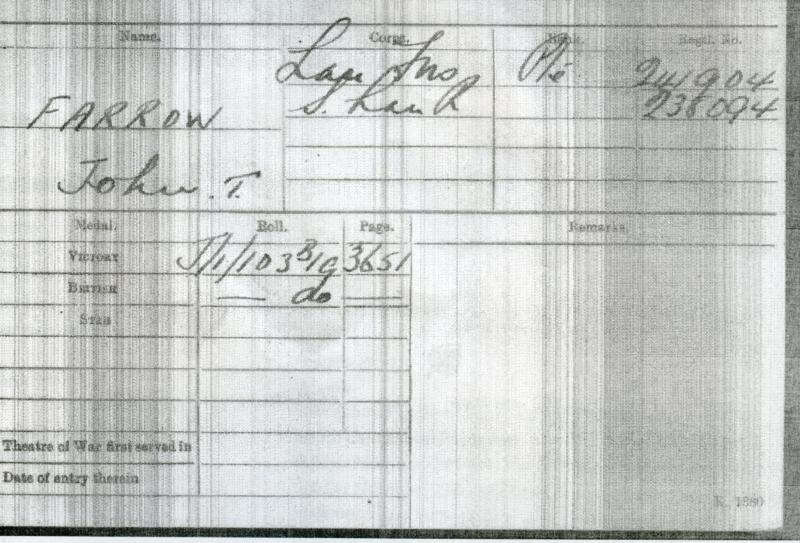 Name. Corps. Rank. Regtl. No.
Lan Fus Pte 241904
S. Lan R 238094
FARROW
John. T.
Medal. Roll. Page. Remarks.
VICTORY J/1/103 B19 3651
BRITISH — do —
STAR
Theatre of War first served in
Date of entry therein
K. 1380